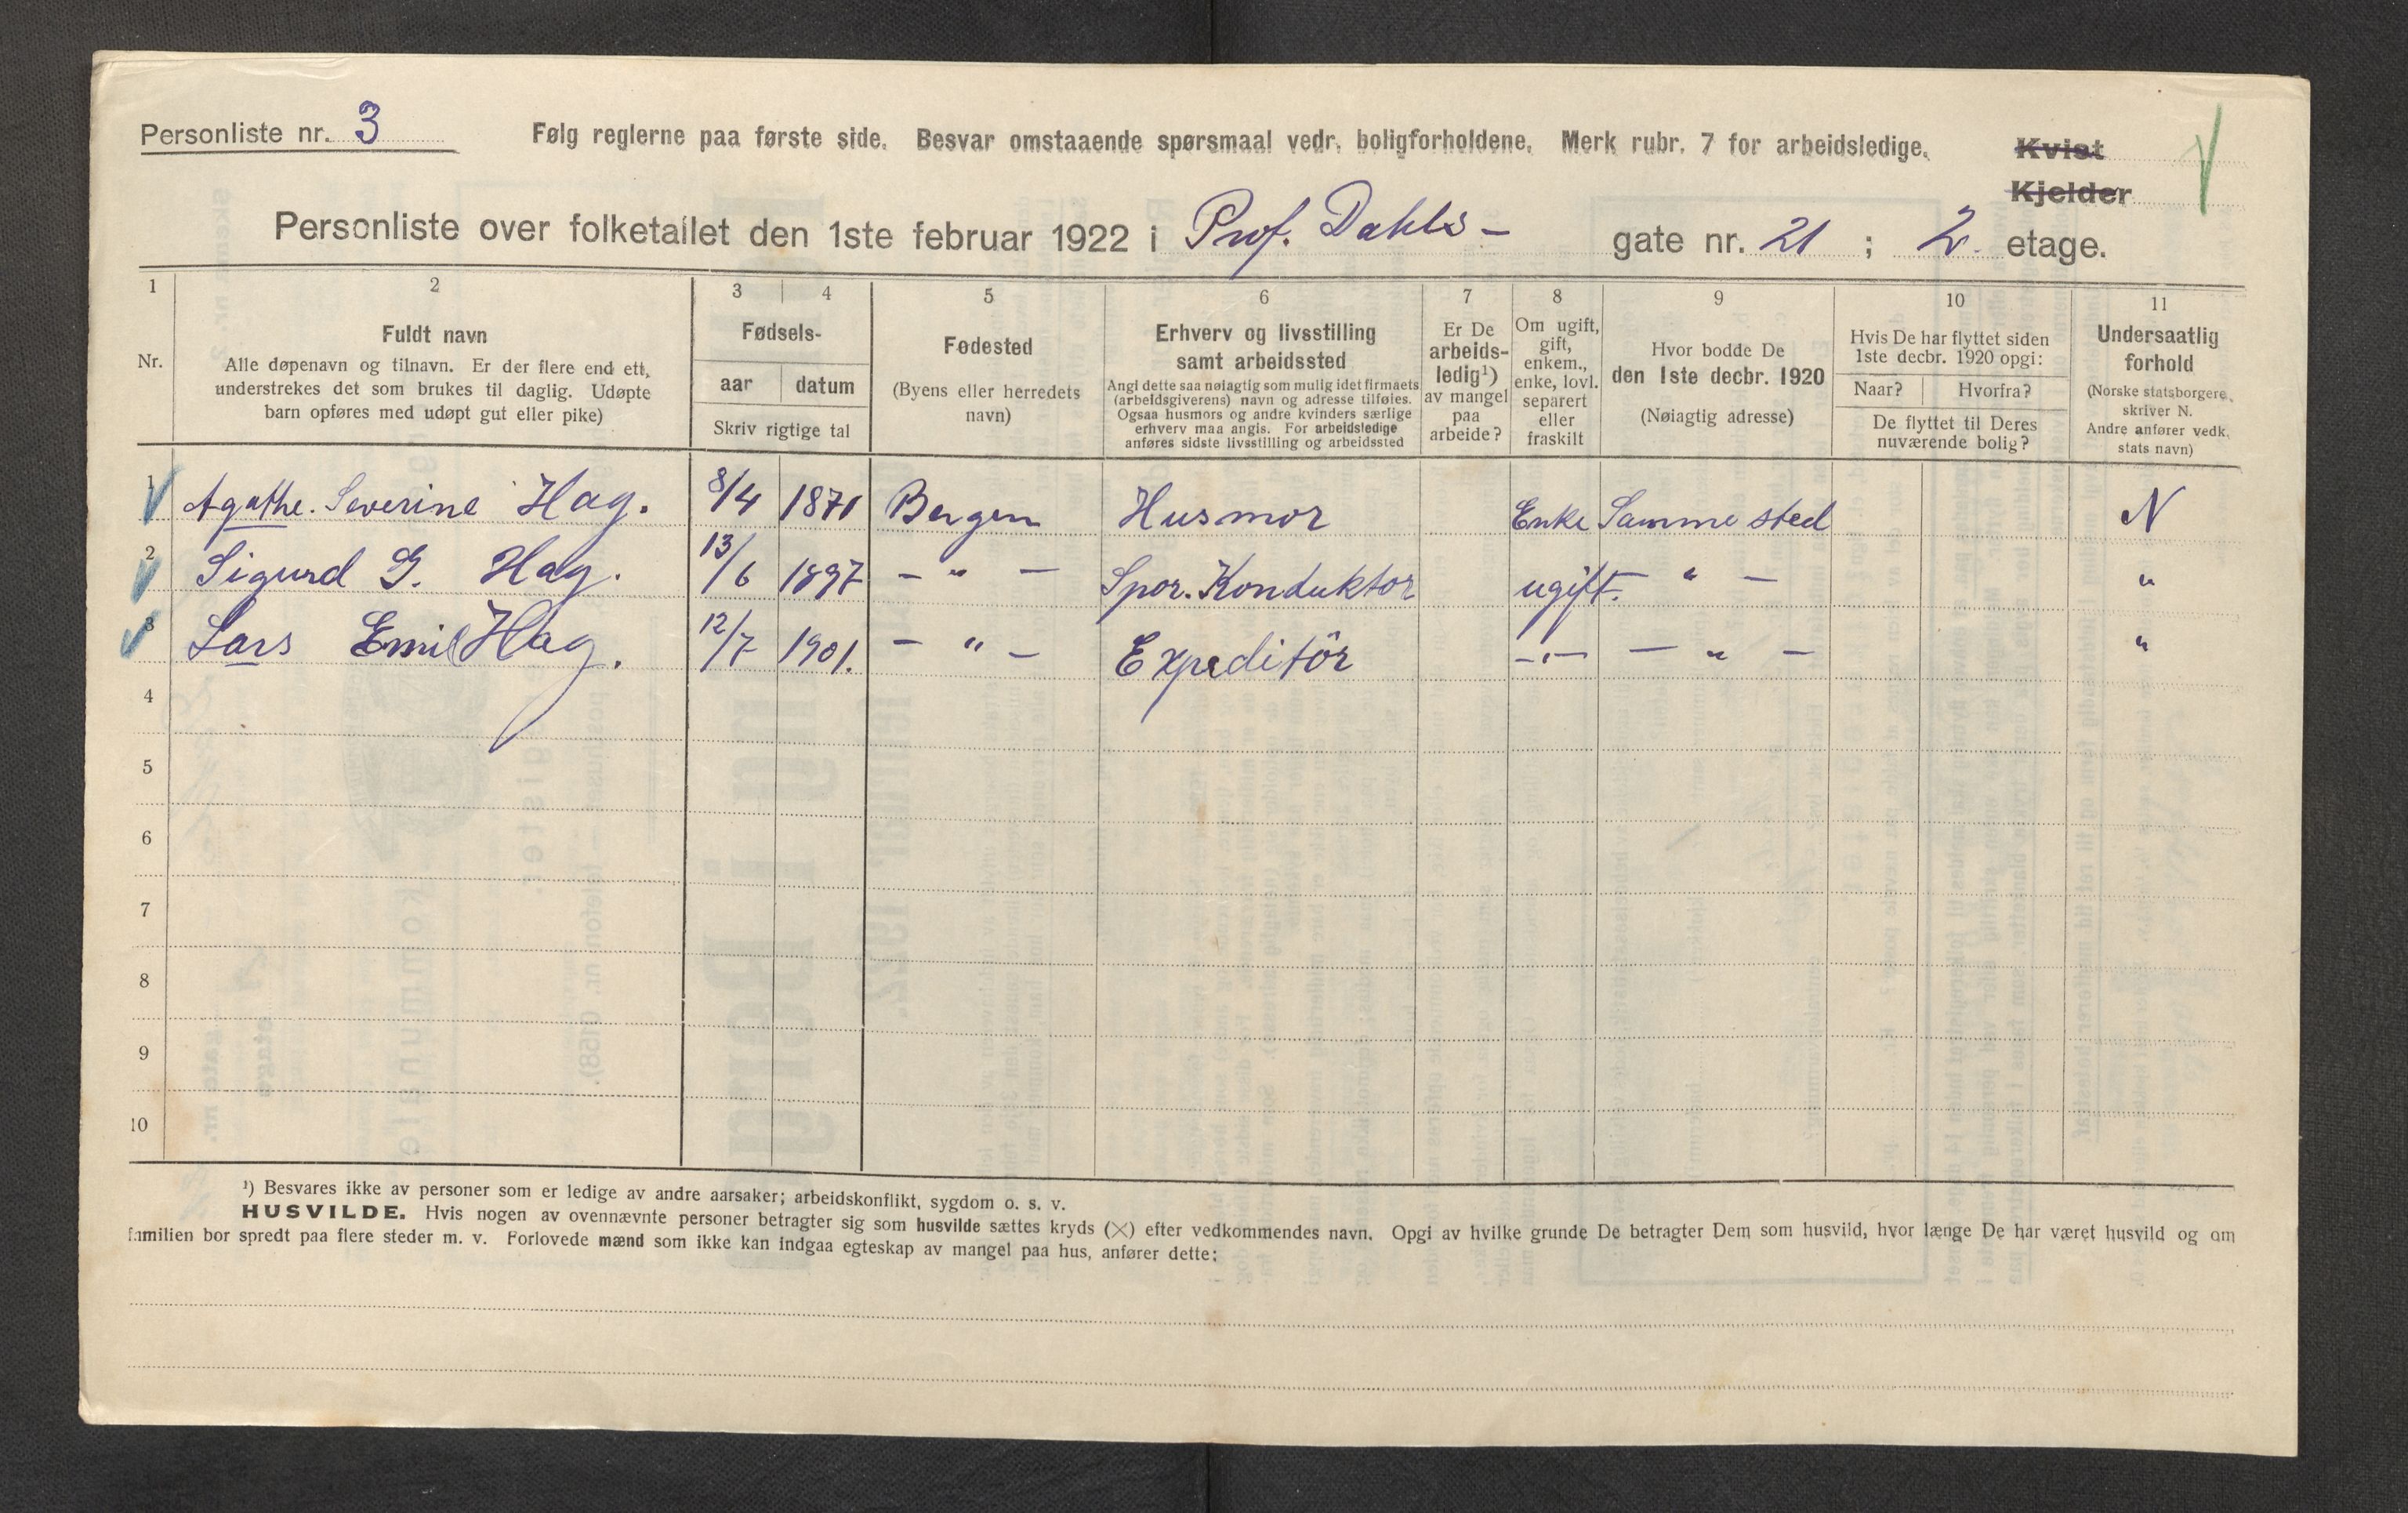 Personliste nr. 3 Følg reglerne paa første side. Besvar omstaaende spørsmaal vedr. boligforholdene. Merk rubr. 7 for arbeidsledige. Kvist
Kjelder
Personliste over folketallet den 1ste februar 1922 i Prof. Dahls - gate nr. 21 ; 2. etage.
1 2 3 4 5 6 7 8 9 10 11
Nr.
Fuldt navn
Alle døpenavn og tilnavn. Er der flere end ett,
understrekes det som brukes til daglig. Udøpte
barn opføres med udøpt gut eller pike)
Fødsels-
aar datum
Skriv rigtige tal
Fødested
(Byens eller herredets
navn)
Erhverv og livsstilling
samt arbeidssted
Angi dette saa nøiagtig som mulig idet firmaets
(arbeidsgiverens) navn og adresse tilføies.
Ogsaa husmors og andre kvinders særlige
erhverv maa angis. For arbeidsledige
anføres sidste livsstilling og arbeidssted
Er De
arbeids-
ledig¹)
av mangel
paa
arbeide?
Om ugift,
gift,
enkem.,
enke, lovl.
separert
eller
fraskilt
Hvor bodde De
den 1ste decbr. 1920
(Nøiagtig adresse)
Hvis De har flyttet siden
1ste decbr. 1920 opgi:
Naar? Hvorfra?
De flyttet til Deres
nuværende bolig?
Undersaatlig
forhold
(Norske statsborgere
skriver N.
Andre anfører vedk.
stats navn)
1 Agathe. Severine Hag. 8/4 1871 Bergen Husmor Enke Samme sted N
2 Sigurd G. Hag. 13/6 1897 - " - Spor. Konduktør ugift. " - "
3 Lars Emil Hag. 12/7 1901. - " - Expeditör - " - - " - "
4
5
6
7
8
9
10
¹) Besvares ikke av personer som er ledige av andre aarsaker; arbeidskonflikt, sygdom o. s. v.
HUSVILDE. Hvis nogen av ovennævnte personer betragter sig som husvilde sættes kryds (×) efter vedkommendes navn. Opgi av hvilke grunde De betragter Dem som husvild, hvor længe De har været husvild og om
familien bor spredt paa flere steder m. v. Forlovede mænd som ikke kan indgaa egteskap av mangel paa hus, anfører dette: